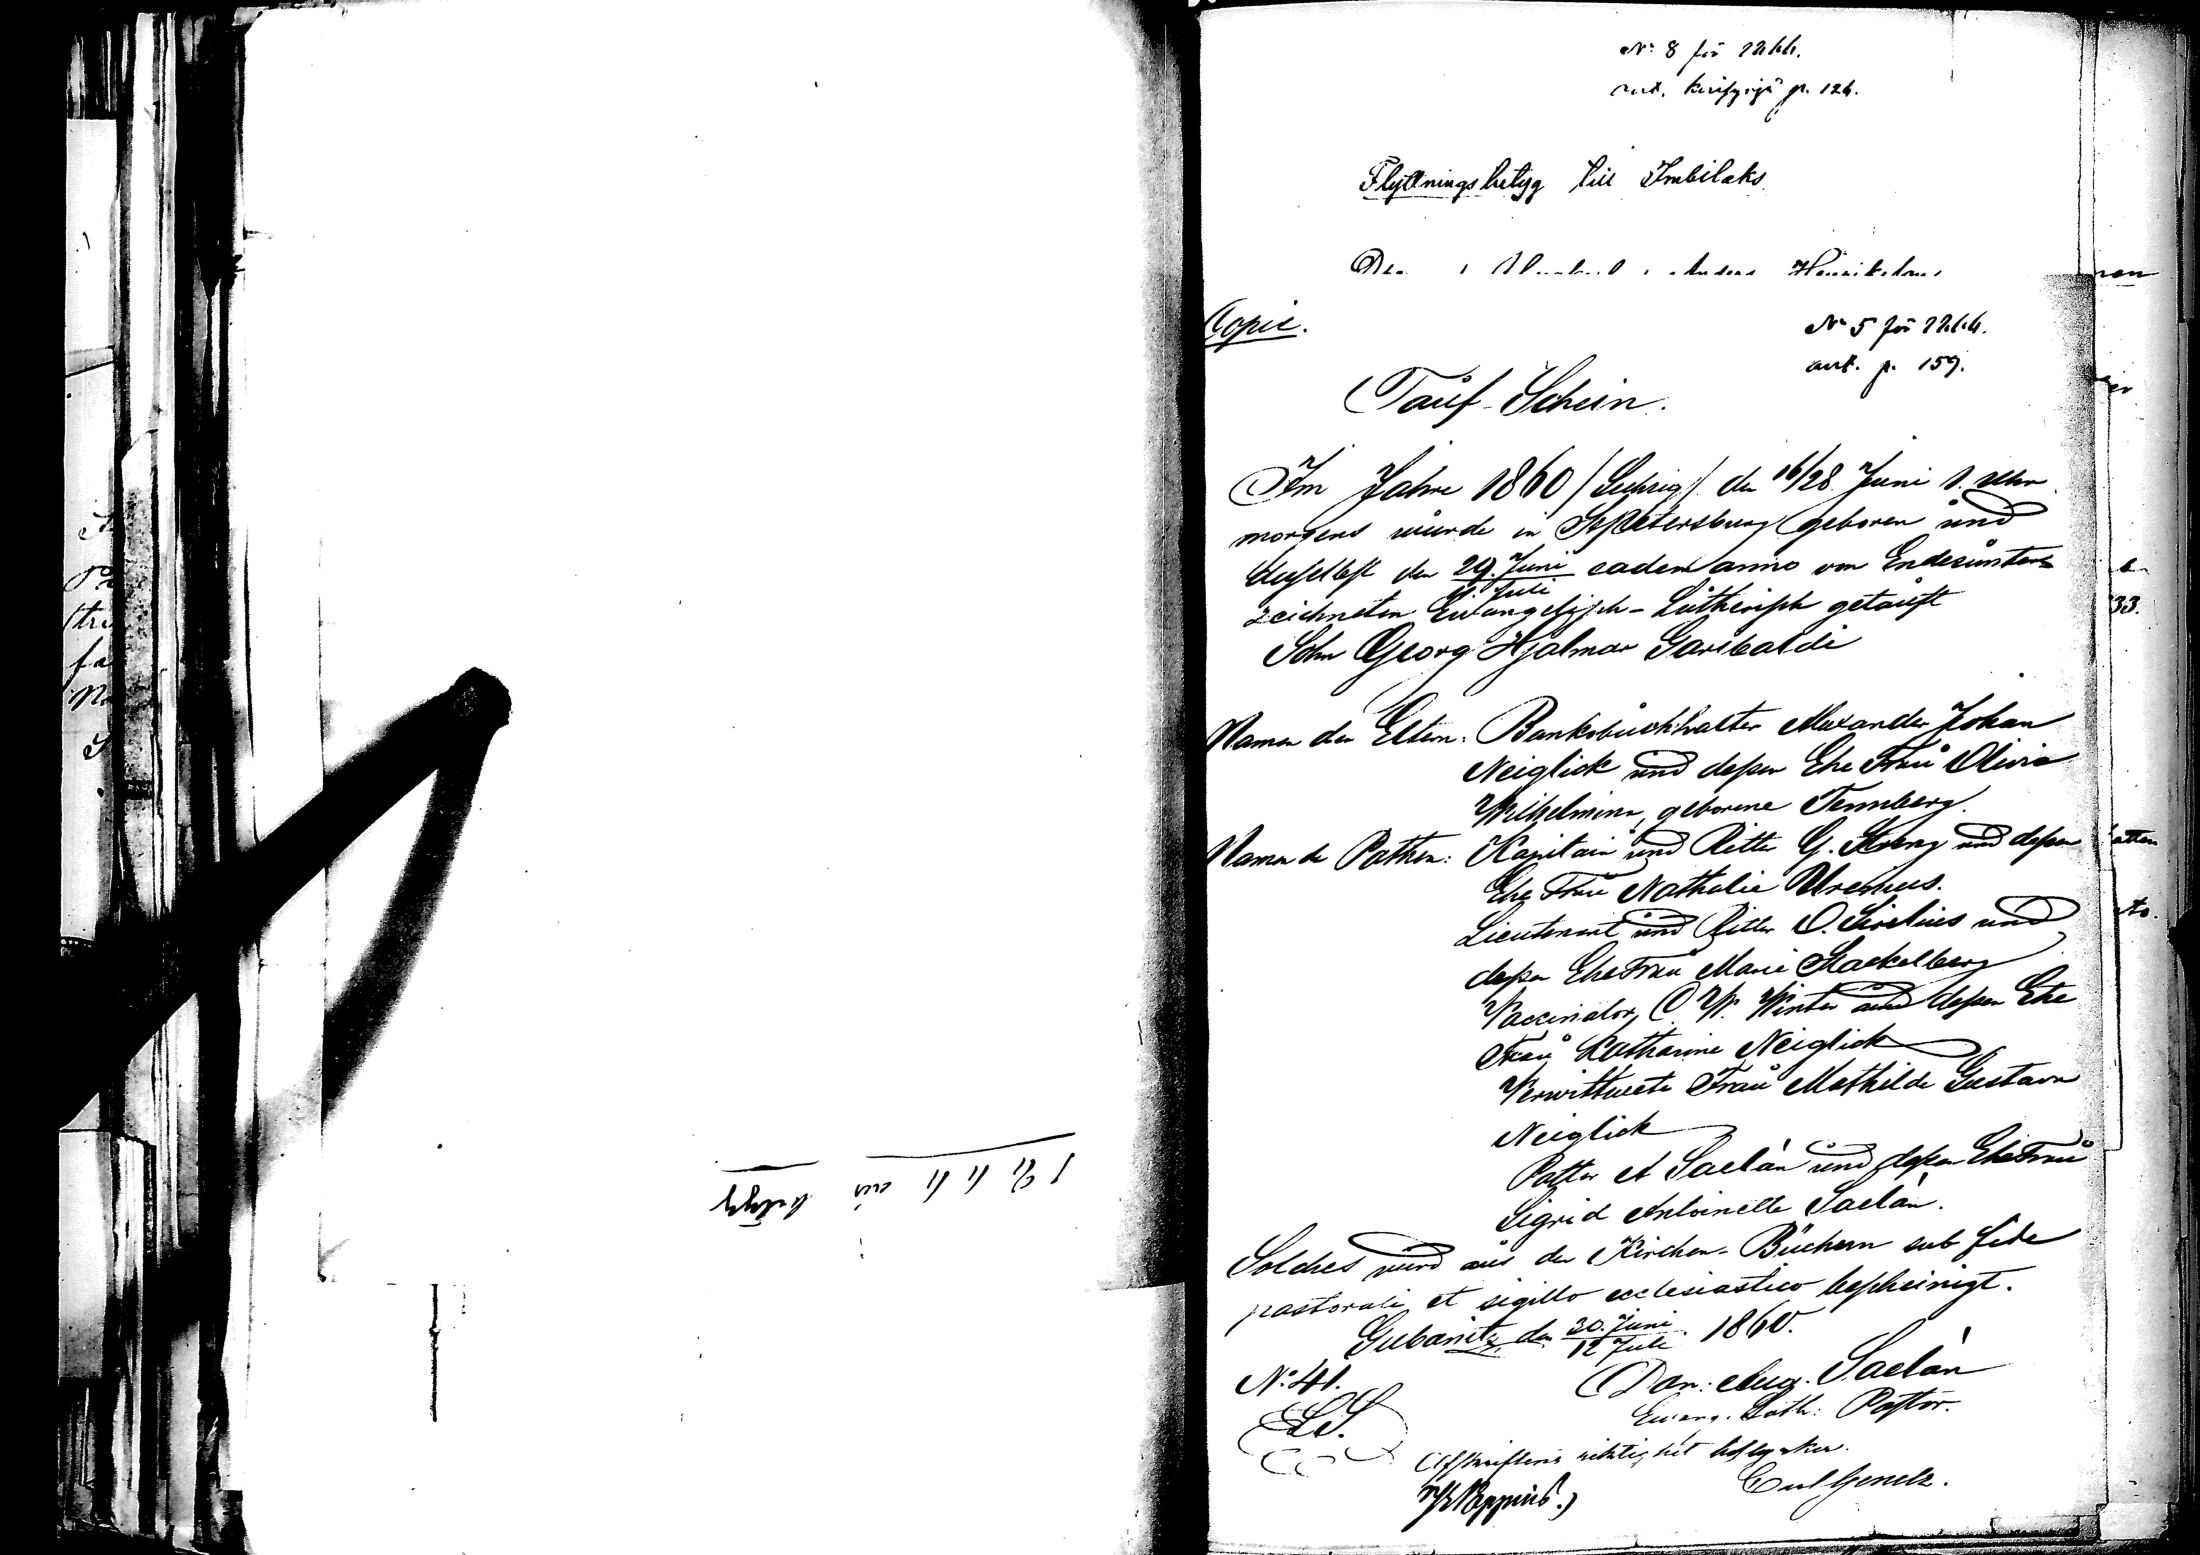 No 8 för 1866.
p. 126.
Flyttningsbetyg till Imbilaks
Henrikson
Copie.
No 5 för 1866.
ant. p. 159.
Tauf-Schein.
Im Jahre 1860 /Sechzig/ den 16/28 Juni 1. Uhr
morgens wurde in St Petersburg geboren und
daselbst den 29. Juni / 11 Juli eadem anno von Endesunter-
zeichneten Evangelisch-Lutherisch getauft
Sohn Georg Hjalmar Garibaldi
Namen der Eltern: Banksbuchhalter Alexander Johan
Neiglick und dessen Ehe Frau Olivia
Wilhelmina, geborene Tennberg.
Namen der Pathen: Kapitain und Ritter G. und dessen
Ehe Frau Nathalie
Lieutenant und Ritter O. Sirelius und
dessen Ehe Frau Marie Stackelberg
Vaccinator, C W. Winter und dessen Ehe
Frau Katharine Neiglick
Verwittwete Frau Mathilde Gustava
Neiglick
Pastor A Saelan und dessen Ehe Frau
Sigrid Antoinette Saelan.
Solches wird aus den Kirchen-Büchern sub fide
pastorali et sigillo ecclesiastico bescheinigt.
Gubanitz den 30. Juni / 12 Juli 1860.
No 41. Dan: Aug. Saelan
L.S. Evang. Luth: Pastor.
Afskriftens riktighet bestyrker
1866 års betyg